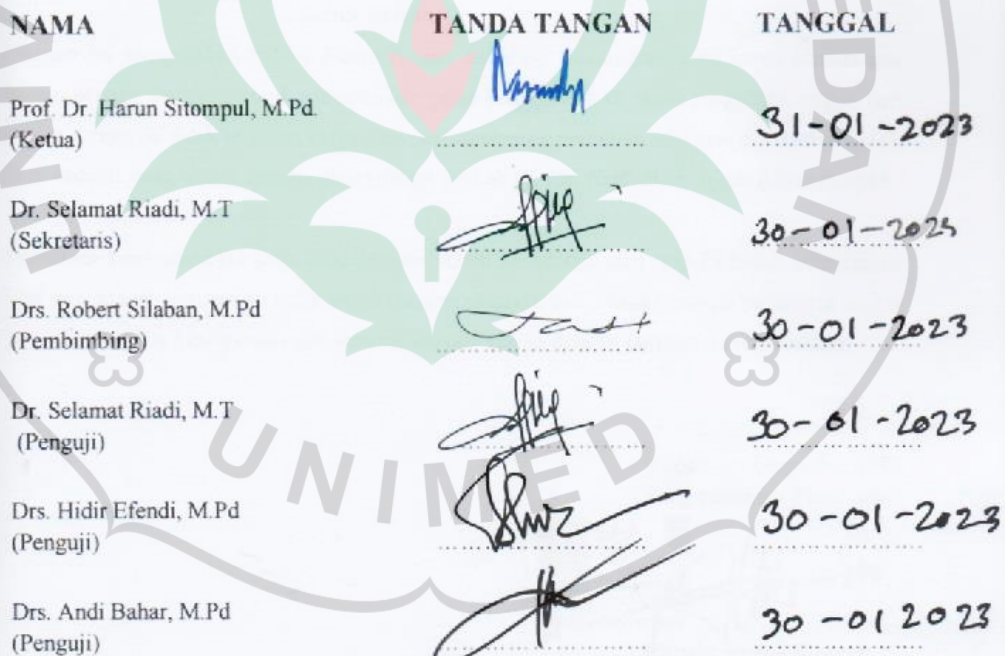 NAMA TANDA TANGAN TANGGAL
Prof. Dr. Harun Sitompul, M.Pd.
(Ketua) 31-01-2023
Dr. Selamat Riadi, M.T
(Sekretaris) 30-01-2023
Drs. Robert Silaban, M.Pd
(Pembimbing) 30-01-2023
Dr. Selamat Riadi, M.T
(Penguji) 30-01-2023
Drs. Hidir Efendi, M.Pd
(Penguji) 30-01-2023
Drs. Andi Bahar, M.Pd
(Penguji) 30-01 2023
UNIMED